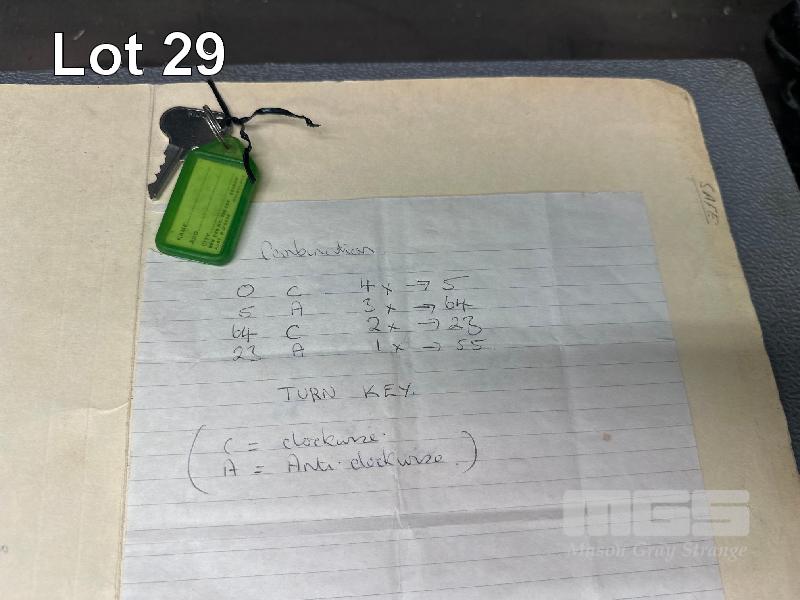 Lot 29
SAFE
Combination
0 C 4x → 5
5 A 3x → 64
64 C 2x → 23
23 A 1x → 55
TURN KEY.
( C = clockwise.
A = Anti-clockwise. )
MGS
Mason Gray Strange